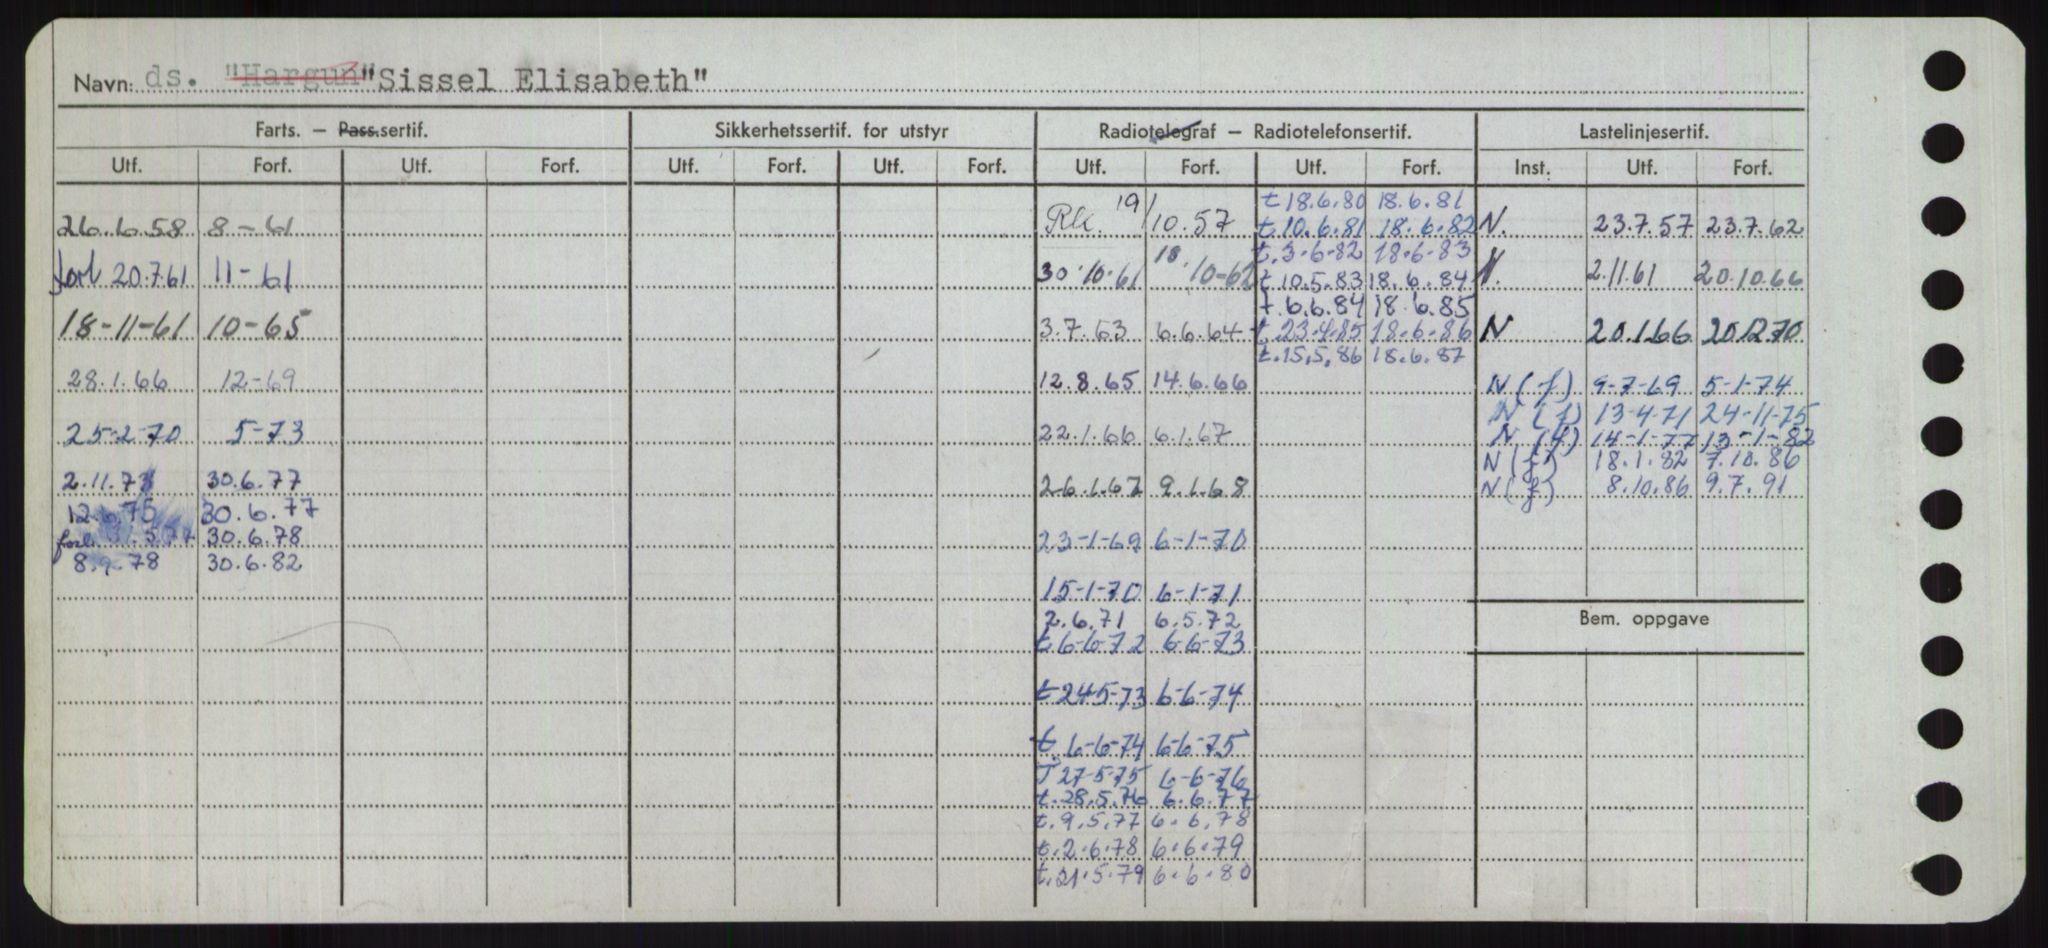 Navn: ds. "Hargun" "Sissel Elisabeth"
Farts. — Pass.sertif. Sikkerhetssertif. for utstyr Radiotelegraf — Radiotelefonsertif. Lastelinjesertif.
Utf. Forf. Utf. Forf. Utf. Forf. Utf. Forf. Utf. Forf. Utf. Forf. Inst. Utf. Forf.
t 18.6.80 18.6.81
26.6.58 8-61 Rk. 19/10.57 t.10.6.81 18.6.82 N. 23.7.57 23.7.62
t.3.6.82 18.6.83
forl 20.7.61 11-61 30.10.61 18.10-62 t 10.5.83 18.6.84 N. 2.11.61 20.10.66
t.6.6.84 18.6.85
18-11-61 10-65 3.7.63 6.6.64 t.23.4.85 18.6.86 N 20.1.66 20.12.70
t.15.5.86 18.6.87
28.1.66 12-69 12.8.65 14.6.66 N (f) 9-7-69 5-1-74
N (f) 13-4-71 24-11-75
25-2-70 5-73 22.1.66 6.1.67 N (f) 14-1-77 13-1-82
N (f) 18.1.82 7.10.86
2.11.73 30.6.77 26.1.67 9.1.68 N (f) 8.10.86 9.7.91
12.6.75 30.6.77
forl. 5.77 30.6.78 23-1-69 6-1-70
8.9.78 30.6.82
15-1-70 6-1-71
2.6.71 6.5.72 Bem. oppgave
t 6-6-72 6-6-73
t 24-5-73 6-6-74
t 6-6-74 6-6-75
T 27-5-75 6-6-76
t.28.5.76 6.6.77
t.9.5.77 6.6.78
t.2.6.78 6.6.79
t.21.5.79 6.6.80